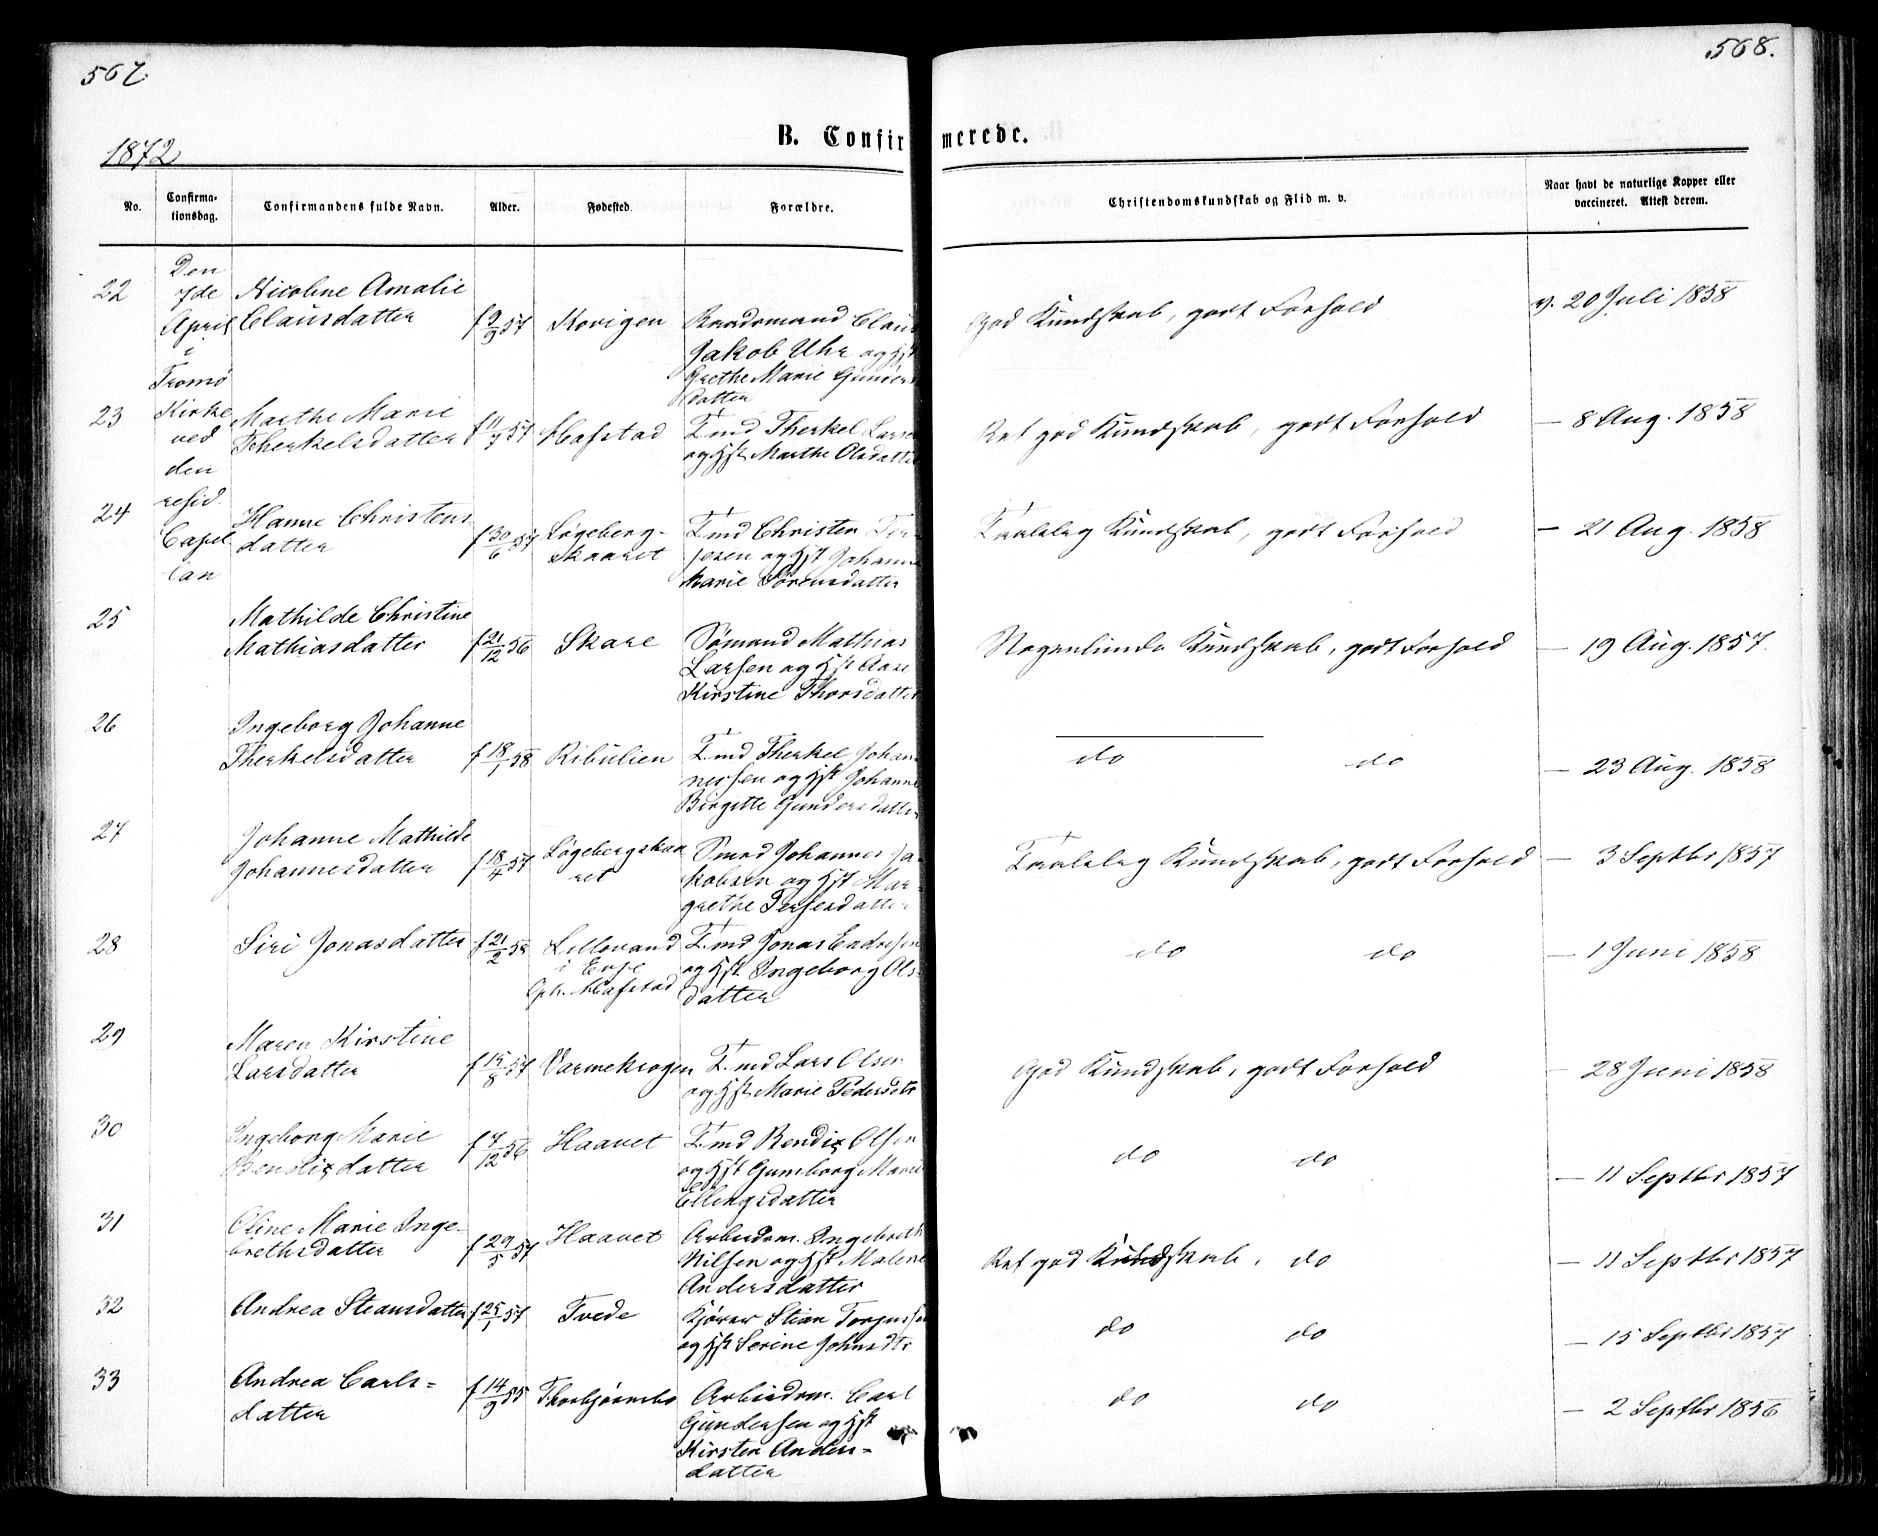 567.
568.
1872
B. Confirmerede.
No.
Confirma-
tionsdag.
Confirmandens fulde Navn.
Alder.
Fødested.
Forældre.
Christendomskundskab og Flid m. v.
Naar havt de naturlige Kopper eller
vaccineret. Attest derom.
Den
7de
April
i
Tromø
Kirke
ved
den
resid.
Capel
lan
22 Nicoline Amalie
Clausdatter f 9/9 57 Kovigen
Claus
Jakob Uhr og Hst
Grethe Marie Gunders
datter
God Kundskab, godt Forhold v. 20 Juli 1858
23 Marthe Marie
Therkelsdatter f 11/7 57 Hafstad
T. md Therkel Larsen
og Hst Marthe Olsdatter
Ret god Kundskab, godt Forhold — 8 Aug. 1858
24 Hanne Christens
datter f 30/6 57 Løgeberg-
skaaret
T. md Christen Ter-
jesen og Hst Johanne
Marie Sørensdatter
Taalelig Kundskab, godt Forhold — 21 Aug. 1858
25 Mathilde Christine
Mathiasdatter f 21/12 56 Skare
Sømand Mathias
Larsen og Hst Aase
Kirstine Thorsdatter
Nogenlunde Kundskab, godt Forhold — 19 Aug. 1857.
26 Ingeborg Johanne
Therkelsdatter f 18/1 58 Ribulien
T. md Therkel Johan
nessen og Hst Johanne
Birgitte Gundersdatter
do do — 23 Aug. 1858
27 Johanne Mathilde
Johannesdatter f 18/4 57 Løgebergskaa
ret
Smed Johannes Ja-
kobsen og Hst Mar-
grethe Terjesdatter
Taalelig Kundskab, godt Forhold — 3 Septbr 1857
28 Siri Jonasdatter f 21/2 58 Lillevand
i Evje
Oph. Hafstad
T. md Jonas Endresen
og Hst Ingeborg Ols-
datter
do do — 1 Juni 1858
29 Maren Kirstine
Larsdatter f 15/8 57 Varmekrogen
T. md Lars Olsen
og Hst Marie Pedersdtr
God Kundskab, godt Forhold — 28 Juni 1858
30 Ingeborg Marie
Bendixdatter f 7/12 56 Haavet
T. md Bendix Olsen
og Hst Gunborg Marie
Ellingsdatter
do do — 11 Septbr 1857
31 Oline Marie Inge-
brethsdatter f 29/5 57 Haavet
Arbeidsm. Ingebreth
Nilsen og Hst Malene
Andersdatter
Ret god Kundskab, do — 11 Septbr 1857
32 Andrea Stiansdatter f 25/1 57 Tvede
Kjører Stian Torjussen
og Hst Serine Johnsdtr
do do — 15 Septbr 1857
33 Andrea Carls-
datter f 14/9 55 Thorbjørnsbo
Arbeidsm. Carl
Gundersen og Hst
Kirsten Anders-
datter
do do — 2 Septbr 1856